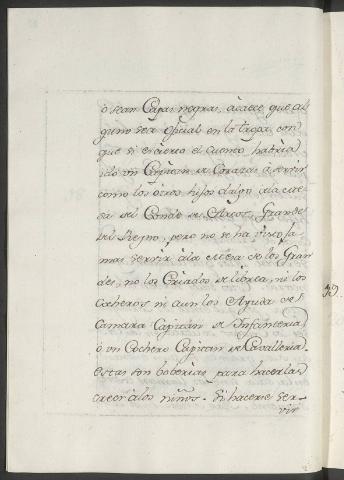 ò sean Capas negras, acaece que al
guno sea oficial en la tropa, con
que si es cierto el cuento habria
ido un Capitan de Corazas à servir
como los otros hijos dalgo à la me
sa del Conde de Arcos, Grande
del Reyno, pero no se ha visto ja
mas servir à la mesa de los Gran
des, no los Criados de librea, ni los
Cocheros ni aun los Ayuda de
Camara Capitan de Infanteria,
ò un Cochero Capitan de Cavalleria,
estas son boberias para hacerlas
creer à los niños. Si hacerse ser-
vir
39.